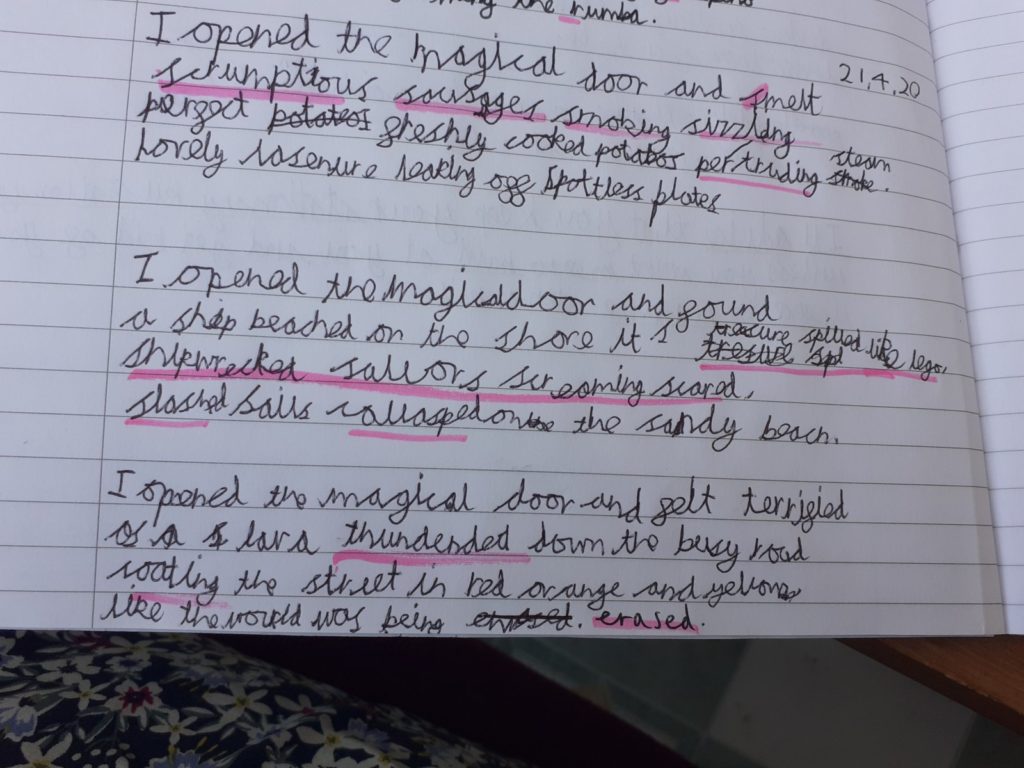 the rumba.
I opened the magical door and smelt
21,4,20
scrumptious sausgges smoking sizzling
perfect potatoes freshly cooked potatos pertruding steam smoke.
Lovely lasenure leaking off spottless plates
I opened the magical door and found
a ship beached on the shore it s treacure spilled like lego,
shipwrecked sailors screaming scared,
slashed sails collasped on the the sandy beach.
I opened the magical door and felt terrified
as a lava thundended down the busy road
coating the street in red orange and yellow
like the would was being erased. erased.